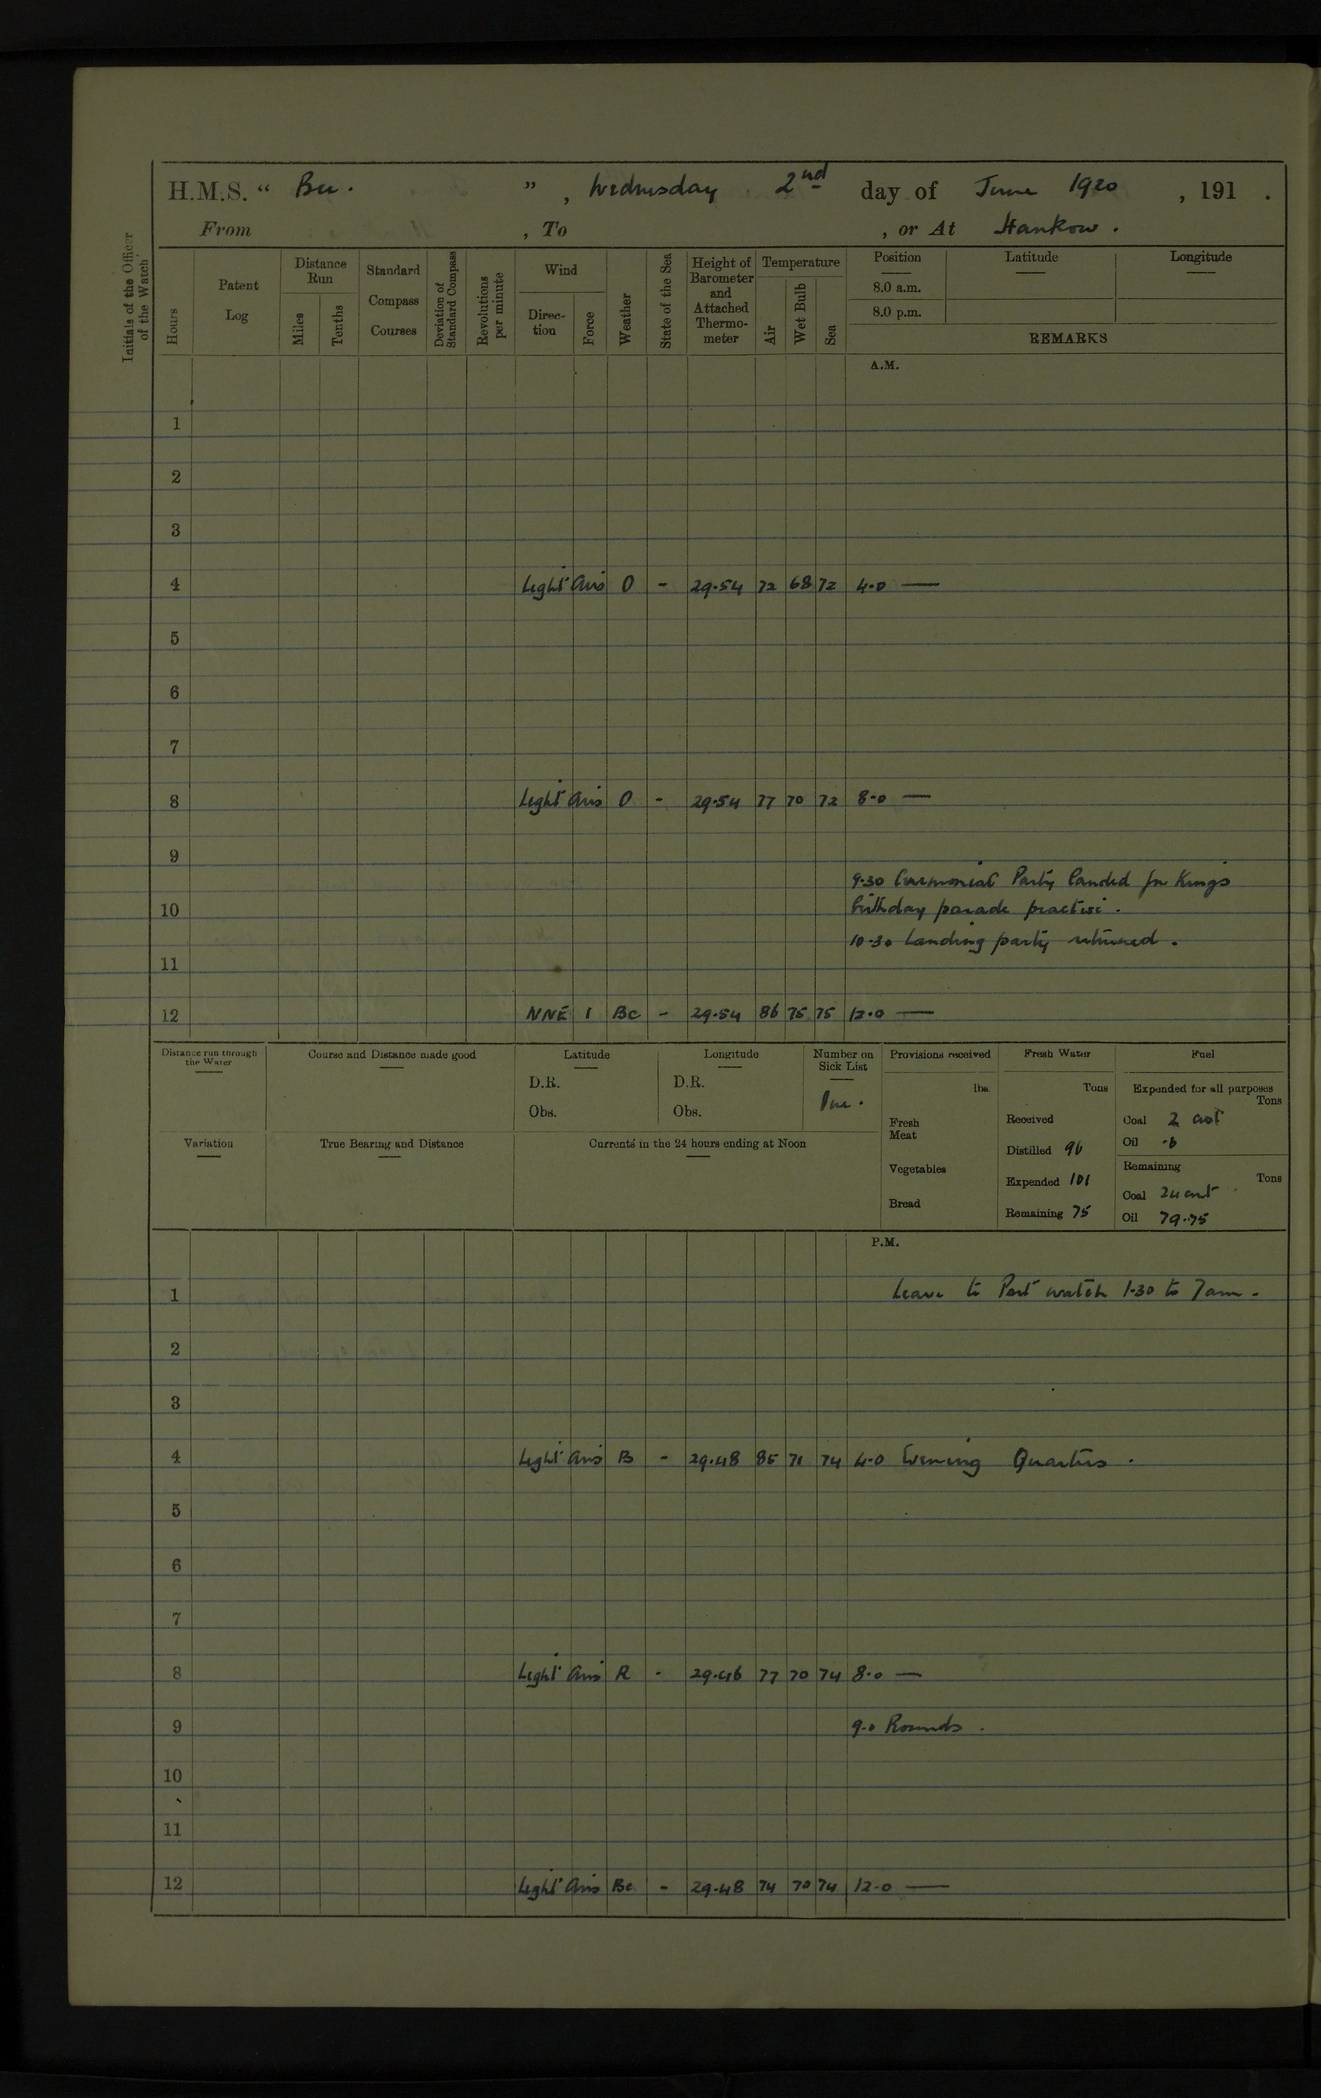 H.M.S. " Bee. ", Wednesday 2nd day of June 1920, 191 .
From , To , or At Hankow.
Initials of the Officer of the Watch
Hours
Patent Log
Distance Run
Miles
Tenths
Standard Compass Courses
Deviation of Standard Compass
Revolutions per minute
Wind
Direc-tion
Force
Weather
State of the Sea
Height of Barometer and Attached Thermo-meter
Temperature
Air
Wet Bulb
Sea
Position Latitude Longitude
8.0 a.m.
8.0 p.m.
REMARKS
A.M.
1
2
3
4 Light airs O - 29.54 72 68 72 4.0 —
5
6
7
8 Light airs O - 29.54 77 70 72 8.0 —
9
9.30 Ceremonial Party landed for Kings
10 birthday parade practise.
10.30 Landing party returned.
11
12 NNE 1 Bc - 29.54 86 75 75 12.0 —
Distance run through the Water
Course and Distance made good
Latitude
D.R.
Obs.
Longitude
D.R.
Obs.
Number on Sick List
One.
Provisions received
lbs.
Fresh Meat
Vegetables
Bread
Fresh Water
Tons
Received
Distilled 96
Expended 101
Remaining 75
Fuel
Expended for all purposes
Tons
Coal 2 cwt
Oil .6
Remaining
Tons
Coal 24 cwt
Oil 79.75
Variation
True Bearing and Distance
Currents in the 24 hours ending at Noon
P.M.
1 Leave to Port watch 1.30 to 7am.
2
3
4 Light airs B - 29.48 85 71 74 4.0 Evening Quarters.
5
6
7
8 Light airs R - 29.46 77 70 74 8.0 —
9 9.0 Rounds.
10
11
12 Light airs Bc - 29.48 74 70 74 12.0 —